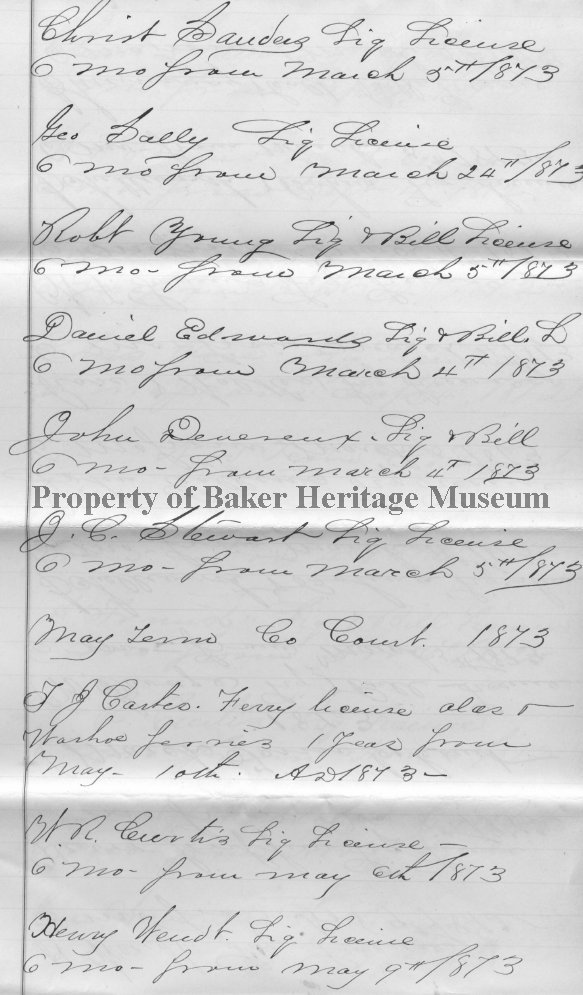 Christ Sanders Liq License
6 mo from March 5th 1873
Geo Sally Liq License
6 mo from March 24th/1873
Robt Young Liq & Bill License
6 mo- from March 5th/1873
Daniel Edwards Liq & Bill L
6 mo from March 4th 1873
John Devereux. Liq & Bill
6 mo- from March 4t 1873
Property of Baker Heritage Museum
J. C. Stewart Liq License
6 mo- from March 5th/1873
May Term Co Court. 1873
T J Carter. Ferry license &
Washoe ferries 1 year from
May- 10th. AD 1873-
W. R. Curtis Liq License-
6 mo- from may 6th/1873
Henry Wendt. Liq License
6 mo- from may 9th/1873